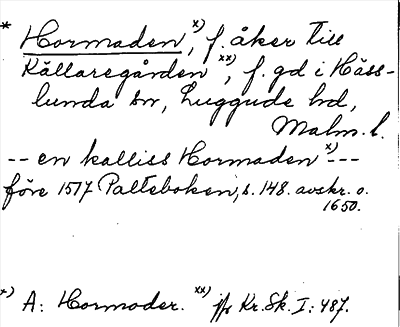 * Hormaden, x) f. åker till
Källaregården xx), f. gd i Häss-
lunda sn, Luggude hd,
Malm. l.
-- en kalliss Hormaden x)---
före 1517 Palteboken, s. 148. avskr. o.
1650.
x) A: Hormader. xx) jfr Kr. Sk. I: 487.